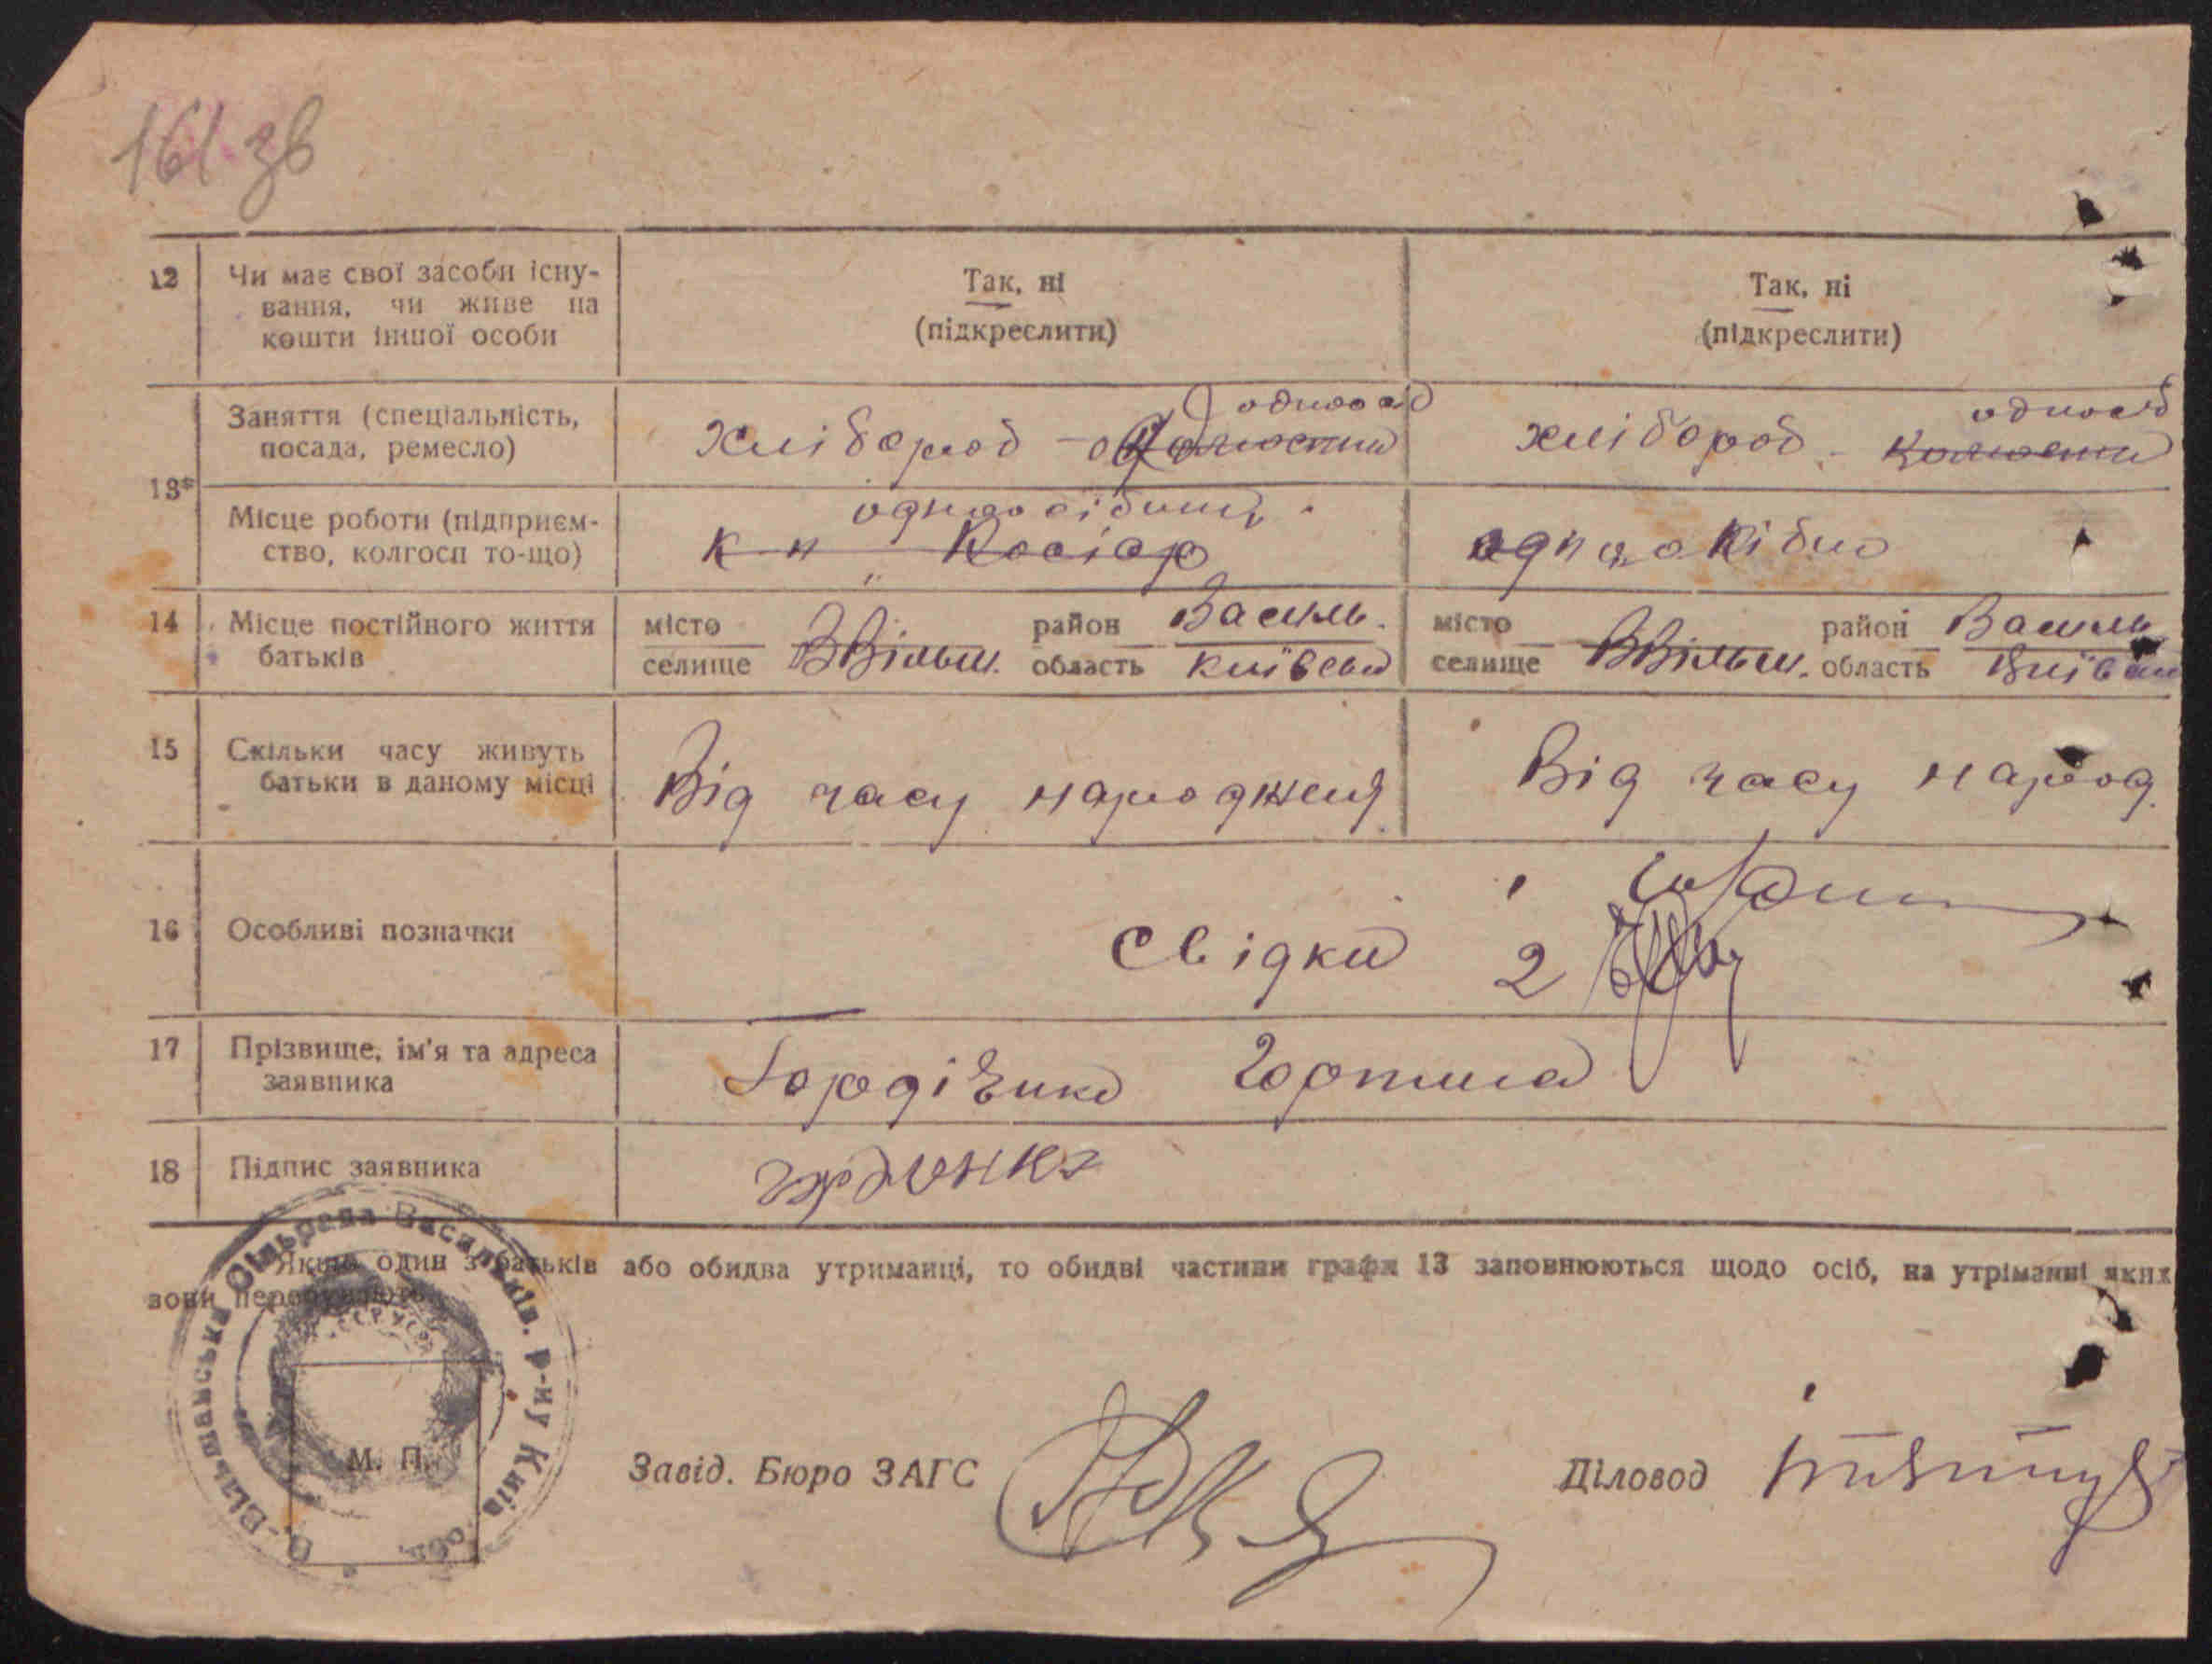 161 зв
12 Чи має свої засоби існу-
вання, чи живе на
кошти іншої особи
Так, ні
(підкреслити)
Так, ні
(підкреслити)
13*
Заняття (спеціальність,
посада, ремесло)
одноосіб
Хлібороб -
одноосіб
хлібороб -
Місце роботи (підприєм-
ство, колгосп то-що)
одноосібний
к п „Косіор
14 Місце постійного життя
батьків
місто
селище
ВВільш.
район Василь.
область Київськ
місто
селище
ВВільш.
район Василь
область
15 Скільки часу живуть
батьки в даному місці
Від часу народженя
Від часу народ.
16 Особливі позначки
Свідки
1
2
17 Прізвище, ім'я та адреса
заявника
Гордієнко
18 Підпис заявника
Якщо один з батьків або обидва утриманці, то обидві частини графи 13 заповнюються щодо осіб, на утріманні яких
вони перебувають.
В.-Вільшанська Сільрада Васильків. р-ну Київ. обл.
М. П.
Завід. Бюро ЗАГС
Діловод